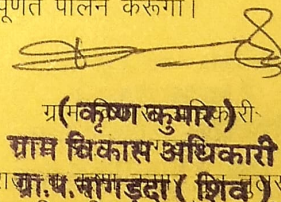 पूर्णत पालन करूंगा।
(कृष्ण कुमार)
ग्राम विकास अधिकारी
ग्रा.प.बागड़दा (शिव)